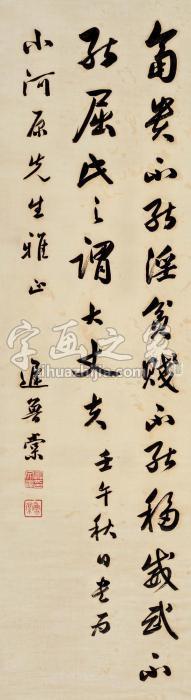 富贵不能淫贫贱不能移威武不
能屈此之谓大丈夫 壬午秋日书为
小河原先生雅正 遲萼棠
字画之家
zihuazhijia.com